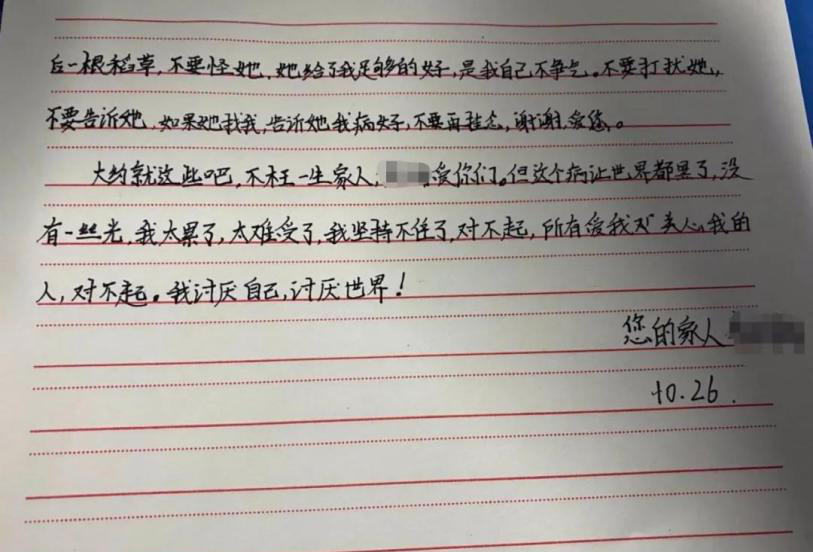 后一根稻草,不要怪她,她给了我足够的好,是我自己不争气。不要打扰她,
不要告诉她,如果她找我,告诉她我病好,不要再挂念,谢谢,爱您。
大约就这些吧,不枉一生家人,爱你们。但这个病让世界都黑了,没
有一丝光,我太累了,太难受了,我坚持不住了,对不起,所有爱我关心我的
人,对不起。我讨厌自己,讨厌世界!
您的家人
10.26.